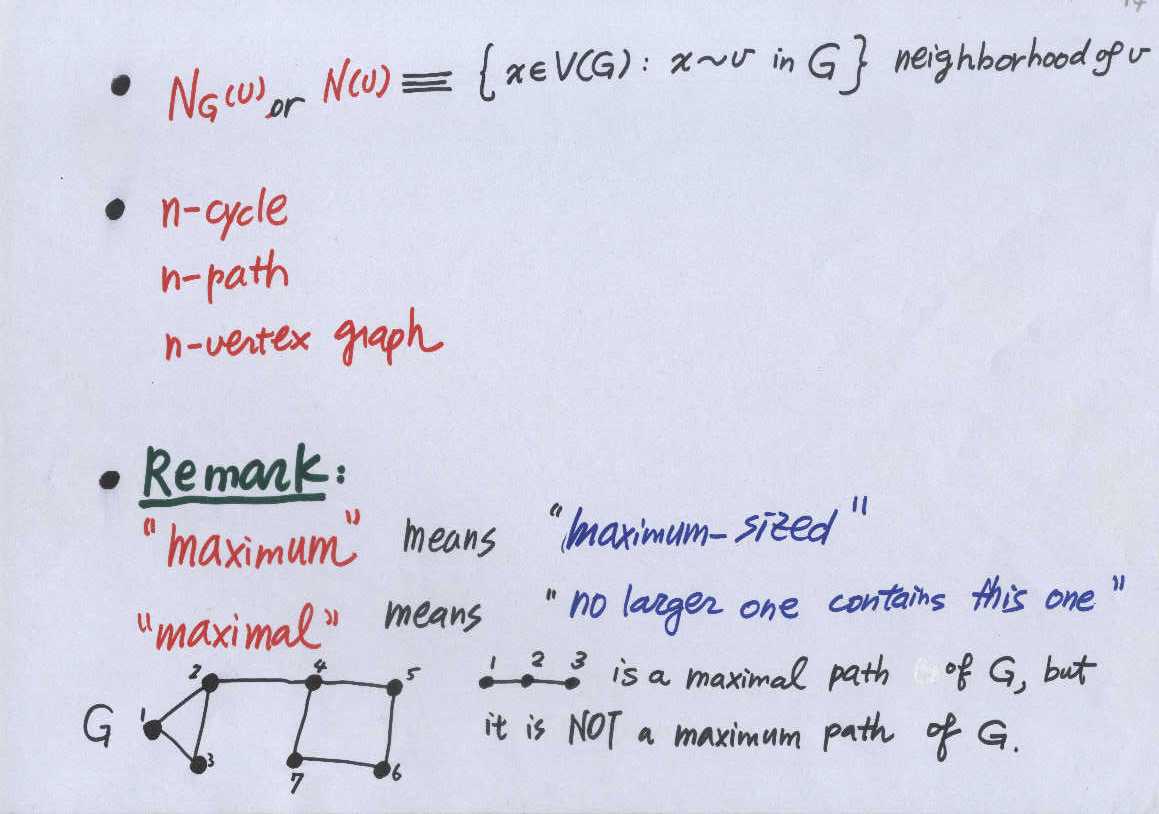 • N_G(v) or N(v) ≡ {x∈V(G): x~v in G} neighborhood of v
• n-cycle
n-path
n-vertex graph
• Remark:
"maximum" means "maximum-sized"
"maximal" means "no larger one contains this one"
2 4 5 1 2 3 is a maximal path of G, but
G 1 it is NOT a maximum path of G.
3 7 6